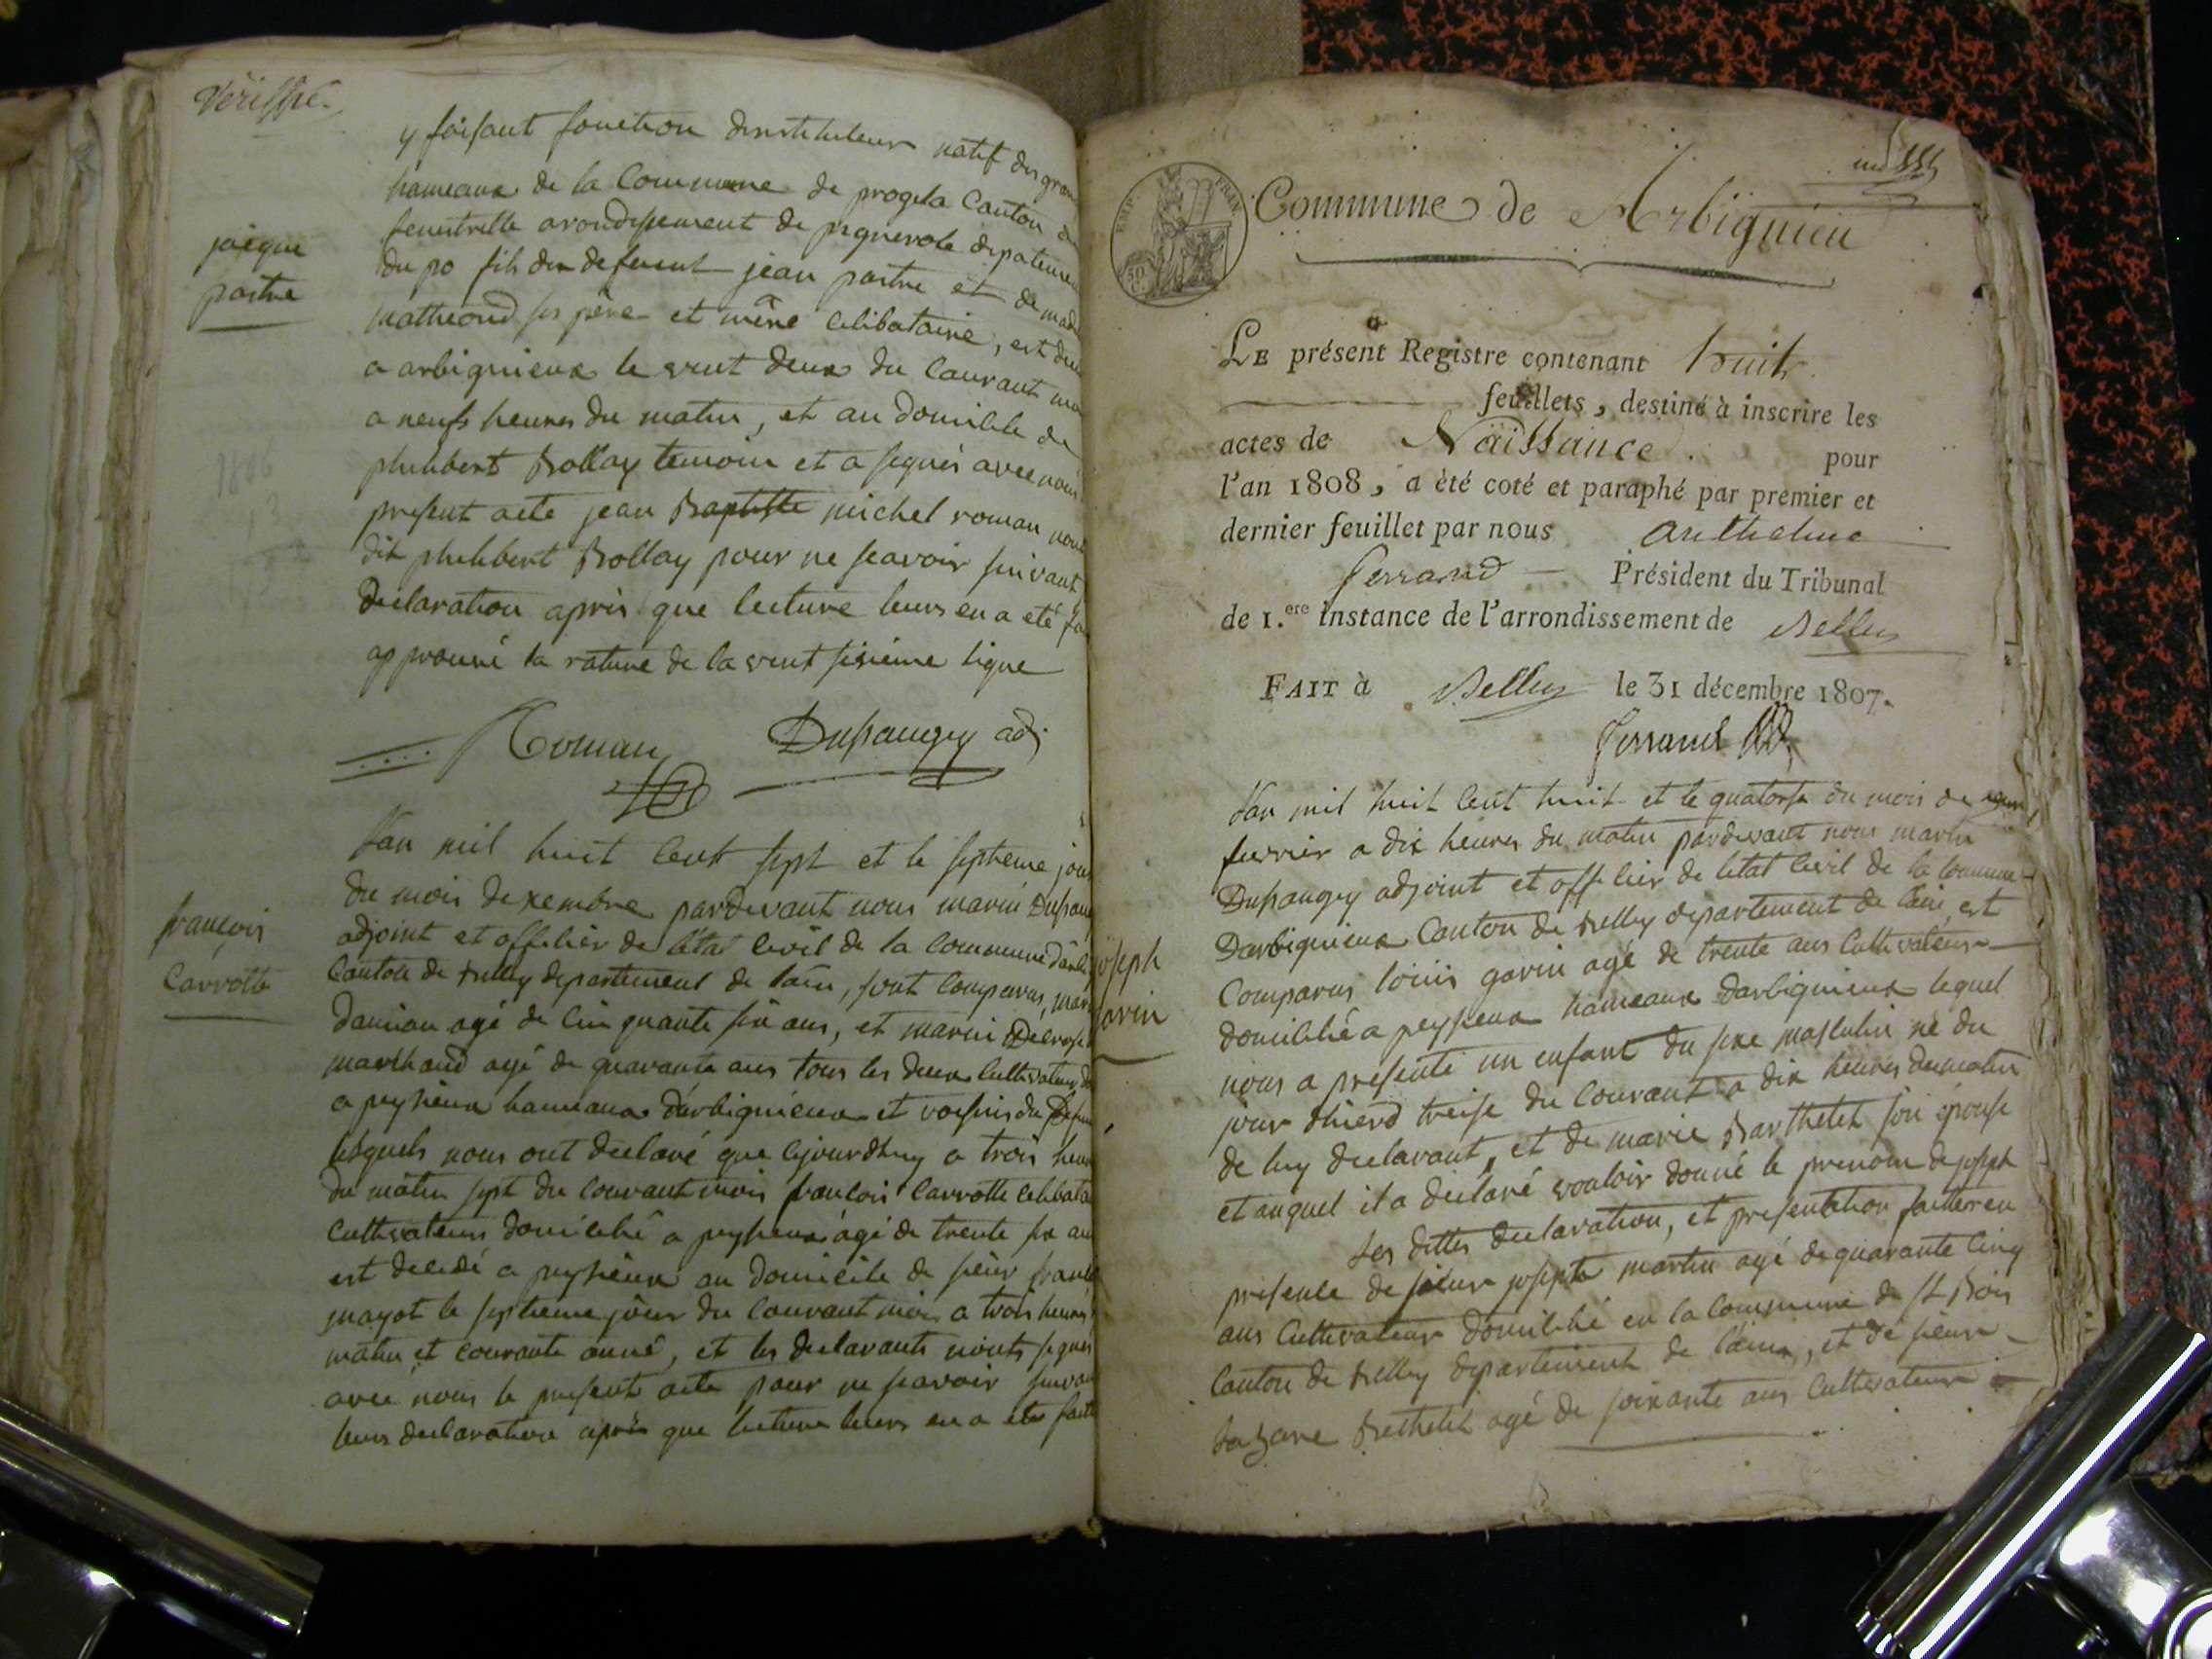 Vériffié
y faisant fonction dinstituteur natif des gran
hameaux de la Commune de progela Canton de
fenestrelle arondissement de pignerole depateme
du po fils du defeunt jean pastre et de mad
matheoud ses père et mère celibataire, est dec
a arbignieux le vint deux du Courant moi
a neufs heures du matin, et au domicile de
philibert Bollay temoin et a signés avec nous
present acte jean Baptiste michel roman non
dit philibert Bollay pour ne scavoir suivant
Declaration après que lecture leurs en a eté fa
approuvé la rature de la vint sixième ligne
jacque
pastre
1806
13
Roman Dupaugey adj
françois
Carrotte
L'an mil huit Cent sept et le septieme jour
du mois dexembre pardevant nous marin Dupaug
adjoint et officier de l'état Civil de la Commune Darbi
Canton de Belley departement de lain, sont Comparus, mar
damian agé de Cinquante six ans, et marin Decroz
marchand agé de quarante ans tous les deux Cultivateurs d
a peysieux hameaux darbignieux et voisins du Defun
lesquels nous ont declaré que cejourdhuy a trois heur
du matin sept du Courant mois francois Carrotte Celibata
Cultivateur domicilié a peysieux agé de trente six an
est decedé a peysieux au domicile de sieur francoi
mayot le septieme jour du Courant mois a trois heures
matin et courante anné, et les declarants nonts signés
avec nous le present acte pour ne scavoir suivan
leurs declaration après que lecture leurs en a eté faite
un
Commune de Arbignieu
EMP. FRAN.
50 C
LE présent Registre contenant huit
feuillets, destiné à inscrire les
actes de Naissance pour
l'an 1808, a été coté et paraphé par premier et
dernier feuillet par nous Anthelme
Ferrand Président du Tribunal
de 1.ere instance de l'arrondissement de Belley
FAIT à Belley le 31 décembre 1807.
Ferrand
joseph
gavin
L'an mil huit Cent huit et le quatorse du mois de
fevrier a dix heures du matin pardevant nous marin
Dupaugey adjoint et officier de letat Civil de la Commune
Darbignieux Canton de Belley departement de lain, est
Comparus louis gavin agé de trente ans Cultivateur
domicilié a peysieux hameaux darbignieux lequel
nous a presenté un enfant du sexe masculin né du
jour dhierd treise du Courant a dix heures dumatin
de luy declarant, et de marie Barthelet son épouse
et auquel il a declaré vouloir donné le prenom de joseph
Les dittes declaration, et presentation faittes en
presence de sieur joseph martin agé de quarante Cinq
ans Cultivateur domicilié en la Commune de St Bois
Canton de Belley departement de lain, et de sieur
Lazare Bethelet agé de soixante ans Cultivateur